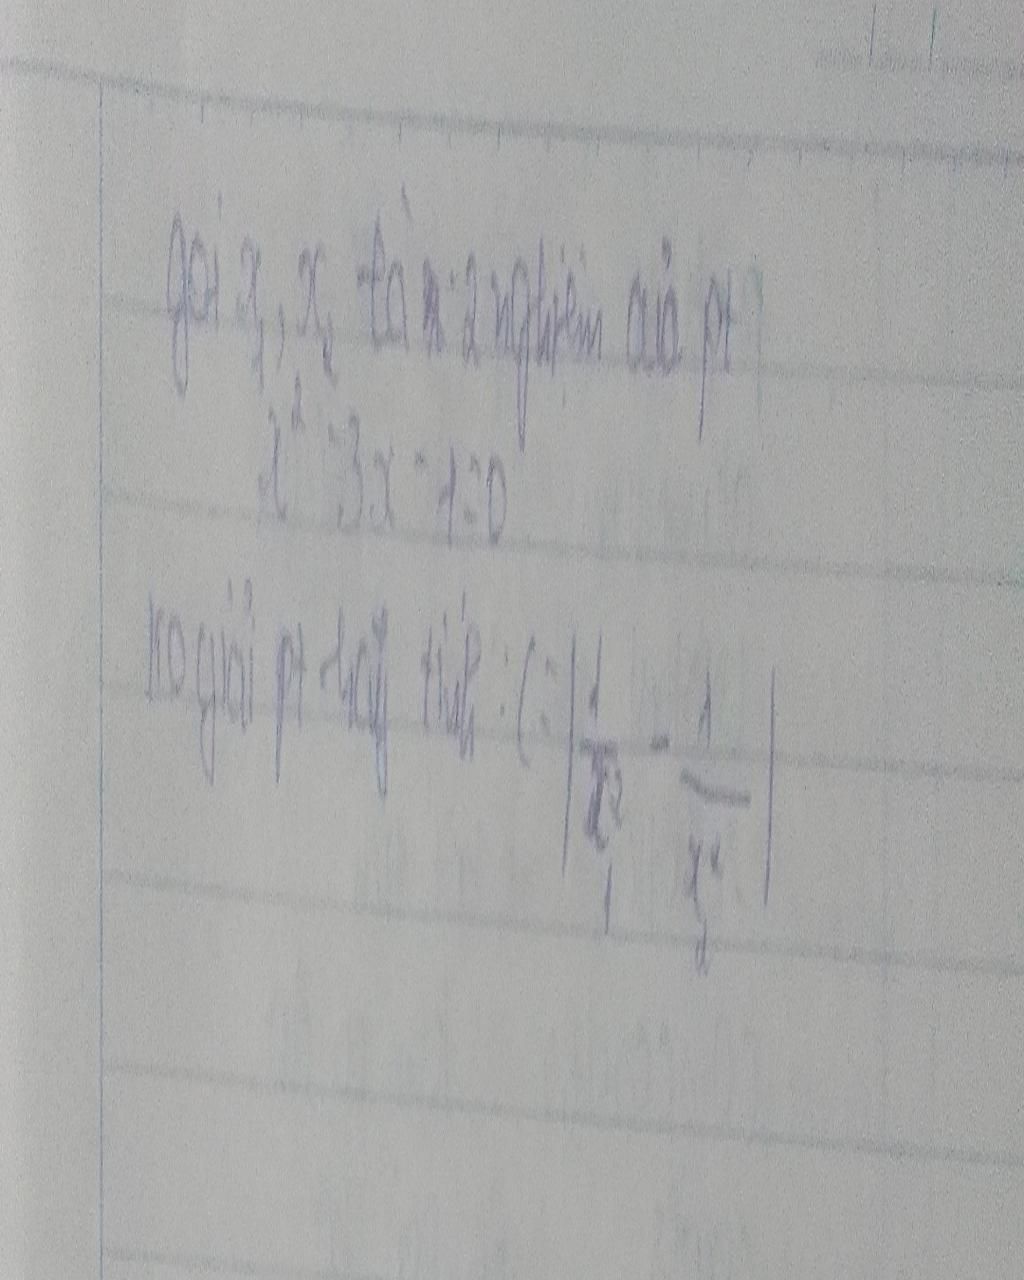 gọi x₁, x₂ là 2 nghiệm của pt
x² - 3x - 1 = 0
ko giải pt hãy tính : C = | 1/x₁² - 1/x₂² |